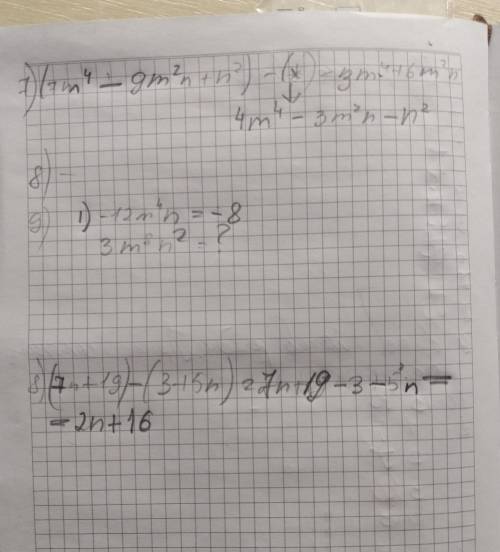 7) (7m⁴ - 9m²n + n²) - (*) = 3m⁴ + 6m²n
4m⁴ - 3m²n - n²
8) -
9) 1) -12m⁴n = -8
3m⁸n² = ?
8) (7n+19) - (3+5n) = 7n+19-3-5n =
= 2n+16